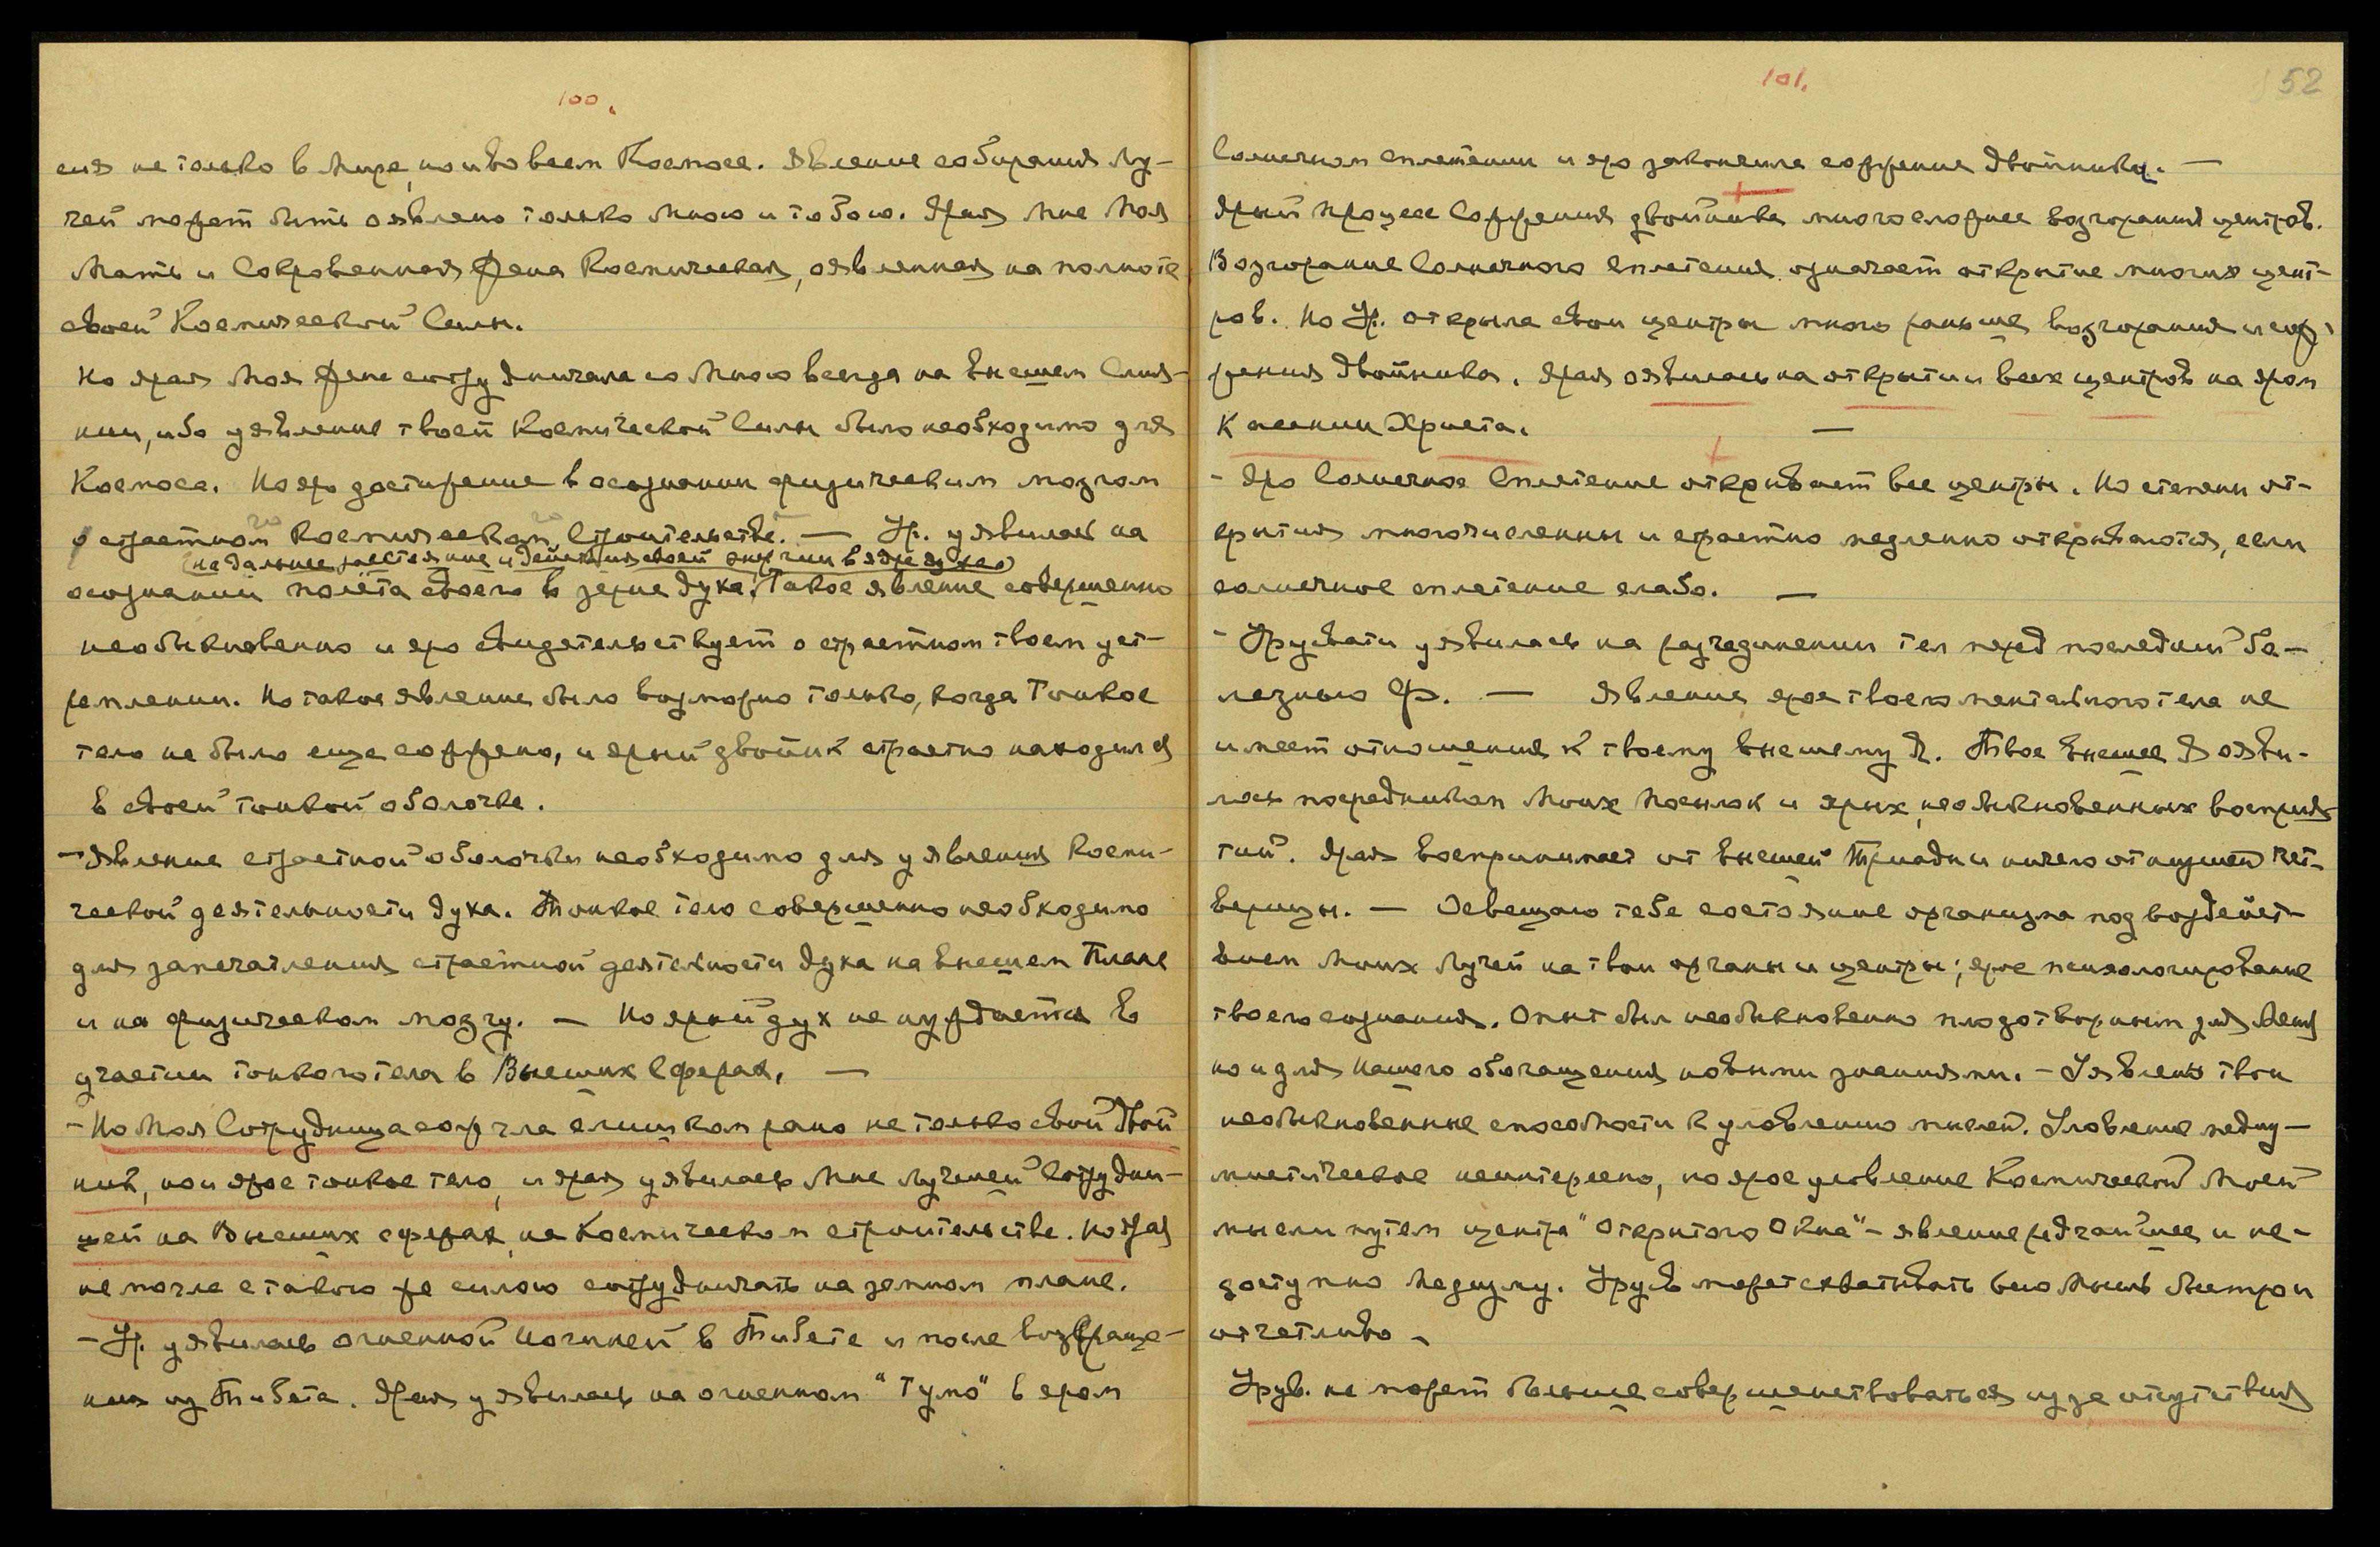 100.
ся не только в Мире, но и во всем Космосе. Явление собирания Лу-
чей может быть оявлено только Мною и тобою. Ярая Мне Моя
Мать и Сокровенная Жена Космическая, оявленная на полноте
своей Космической Силы.
Но ярая Моя Жена сотрудничала со Мною всегда на Внешнем Слия-
нии, ибо уявление твоей Космической Силы было необходимо для
Космоса. Но яро достижение в осознании физическим мозгом
о страстном Космическом Строительстве. — Ур. уявилась на
(на дальнее расстояние и действия своей энергии в ядре духа)
осознании полёта своего в зерне духа. Такое явление совершенно
необыкновенно и яро свидетельствует о страстном твоем уст-
ремлении. Но такое явление было возможно только, когда Тонкое
тело не было еще сожжено, и ярый двойник страстно находился
в своей тонкой оболочке.
— Явление страстной оболочки необходимо для уявления Косми-
ческой деятельности духа. Тонкое тело совершенно необходимо
для запечатления страстной деятельности духа на Внешнем Плане
и на физическом мозгу. — Но ярый дух не нуждается в
участии тонкого тела в Внешних Сферах. —
— Но Моя Сотрудница сожгла слишком рано не только свой двой-
ник, но и ярое тонкое тело, и ярая уявилась Мне лучшей сотрудни-
цей на Внешних сферах, на Космическом строительстве. Но ярая
не могла с такою же силою сотрудничать на земном плане.
— Ур. уявилась огненной йогиней в Тибете и после возвраще-
ния из Тибета. Ярая уявилась на огненном "Тумо" в яром
101.
52
Солнечном сплетении и яро закончила сожжение двойника. —
Ярый процесс Сожжения двойника много сложнее возгорания центров.
Возгорание Солнечного сплетения означает открытие многих цент-
ров. Но Ур. открыла свои центры много раньше возгорания и сож-
жения двойника. Ярая оявилась на открытии всех центров на яром
Касании Христа. —
- Яро Солнечное Сплетение открывает все центры. Но степени от-
крытия многочисленны и страстно медленно открываются, если
солнечное сплетение слабо. —
- Урусвати уявилась на разъединении тел перед последней бо-
лезнью Ф. — Явление ярое твоего ментального тела не
имеет отношения к твоему внешнему Я. Твое внешнее Яояви-
лось посредником Моих Посылок и ярых, необыкновенных восприя-
тий. Ярая воспринимает от высшей Триады и ничего от низшей чет-
верицы. — Освещаю тебе состояние организма под воздейст-
вием Моих Лучей на твои органы и центры; ярое психологирование
твоего сознания. Опыт был необыкновенно плодотворным для Меня
но и для Нашего обогащения новыми знаниями. — Уявлены твои
необыкновенные способности к уловлению мыслей. Уловление медиу-
мистическое неинтересно, но ярое уловление Космической Моей
мысли путем центра "Открытого Окна" - явление редчайшее и не-
доступно Медиуму. Урусв. может схватывать всю Мысль быстро и
отчетливо.
Урув. не может больше совершенствоваться из за отсутствия